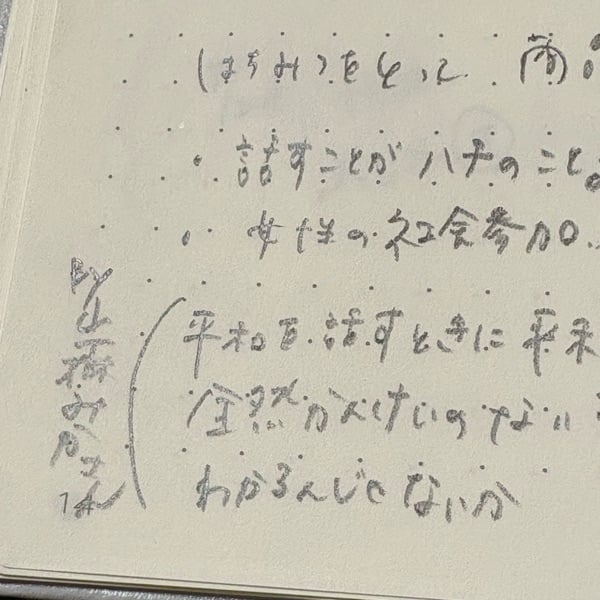 はちみつをとって
話すことがハチのこと
女性の社会参加
平和を話すときに
全然かんけいのない
わかるんじゃないか
By